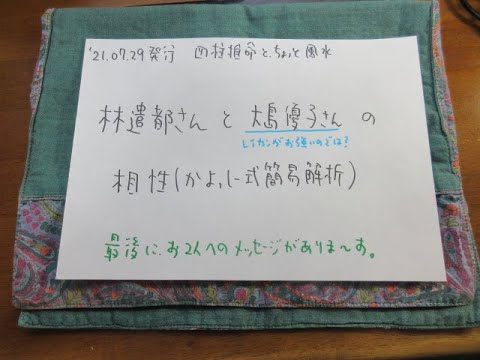 '21.07.29発行 四柱推命と、ちょっと風水
林遣都さんと大島優子さんの
レイカンがお強いのでは?
相性(かよっし式簡易解析)
最後に、お2人へのメッセージがありま〜す。